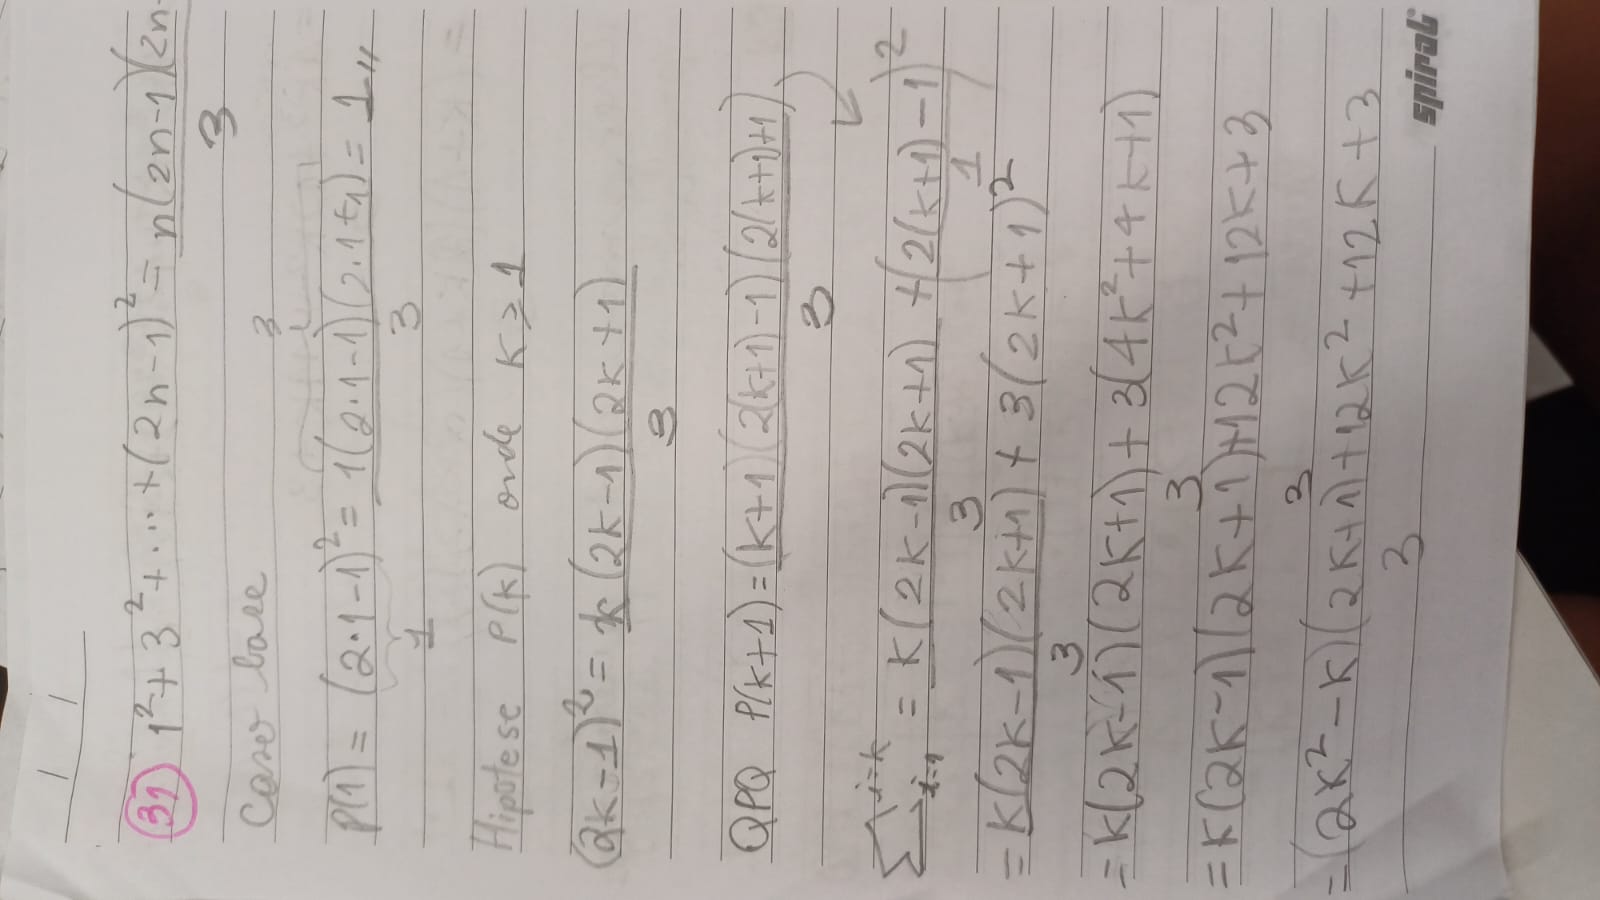 31 1² + 3² + ... + (2n-1)² = n(2n-1)(2n
3
Caso base
3
P(1) = (2·1-1)² = 1(2·1-1)(2·1+1) = 1,,
1 3
Hipotese P(k) onde K ≥ 1
(2k-1)² = k(2k-1)(2k+1)
3
QPQ P(k+1) = (k+1)(2(k+1)-1)(2(k+1)+1)
3
∑ i=k i=1 = k(2k-1)(2k+1) + (2(k+1)-1)²
3 1
= k(2k-1)(2k+1) + 3(2k+1)²
3
= k(2k-1)(2k+1) + 3(4k²+4k+1)
3
= k(2k-1)(2k+1)+12k²+12k+3
3
= (2k²-k)(2k+1)+12k²+12k+3
3
spiral